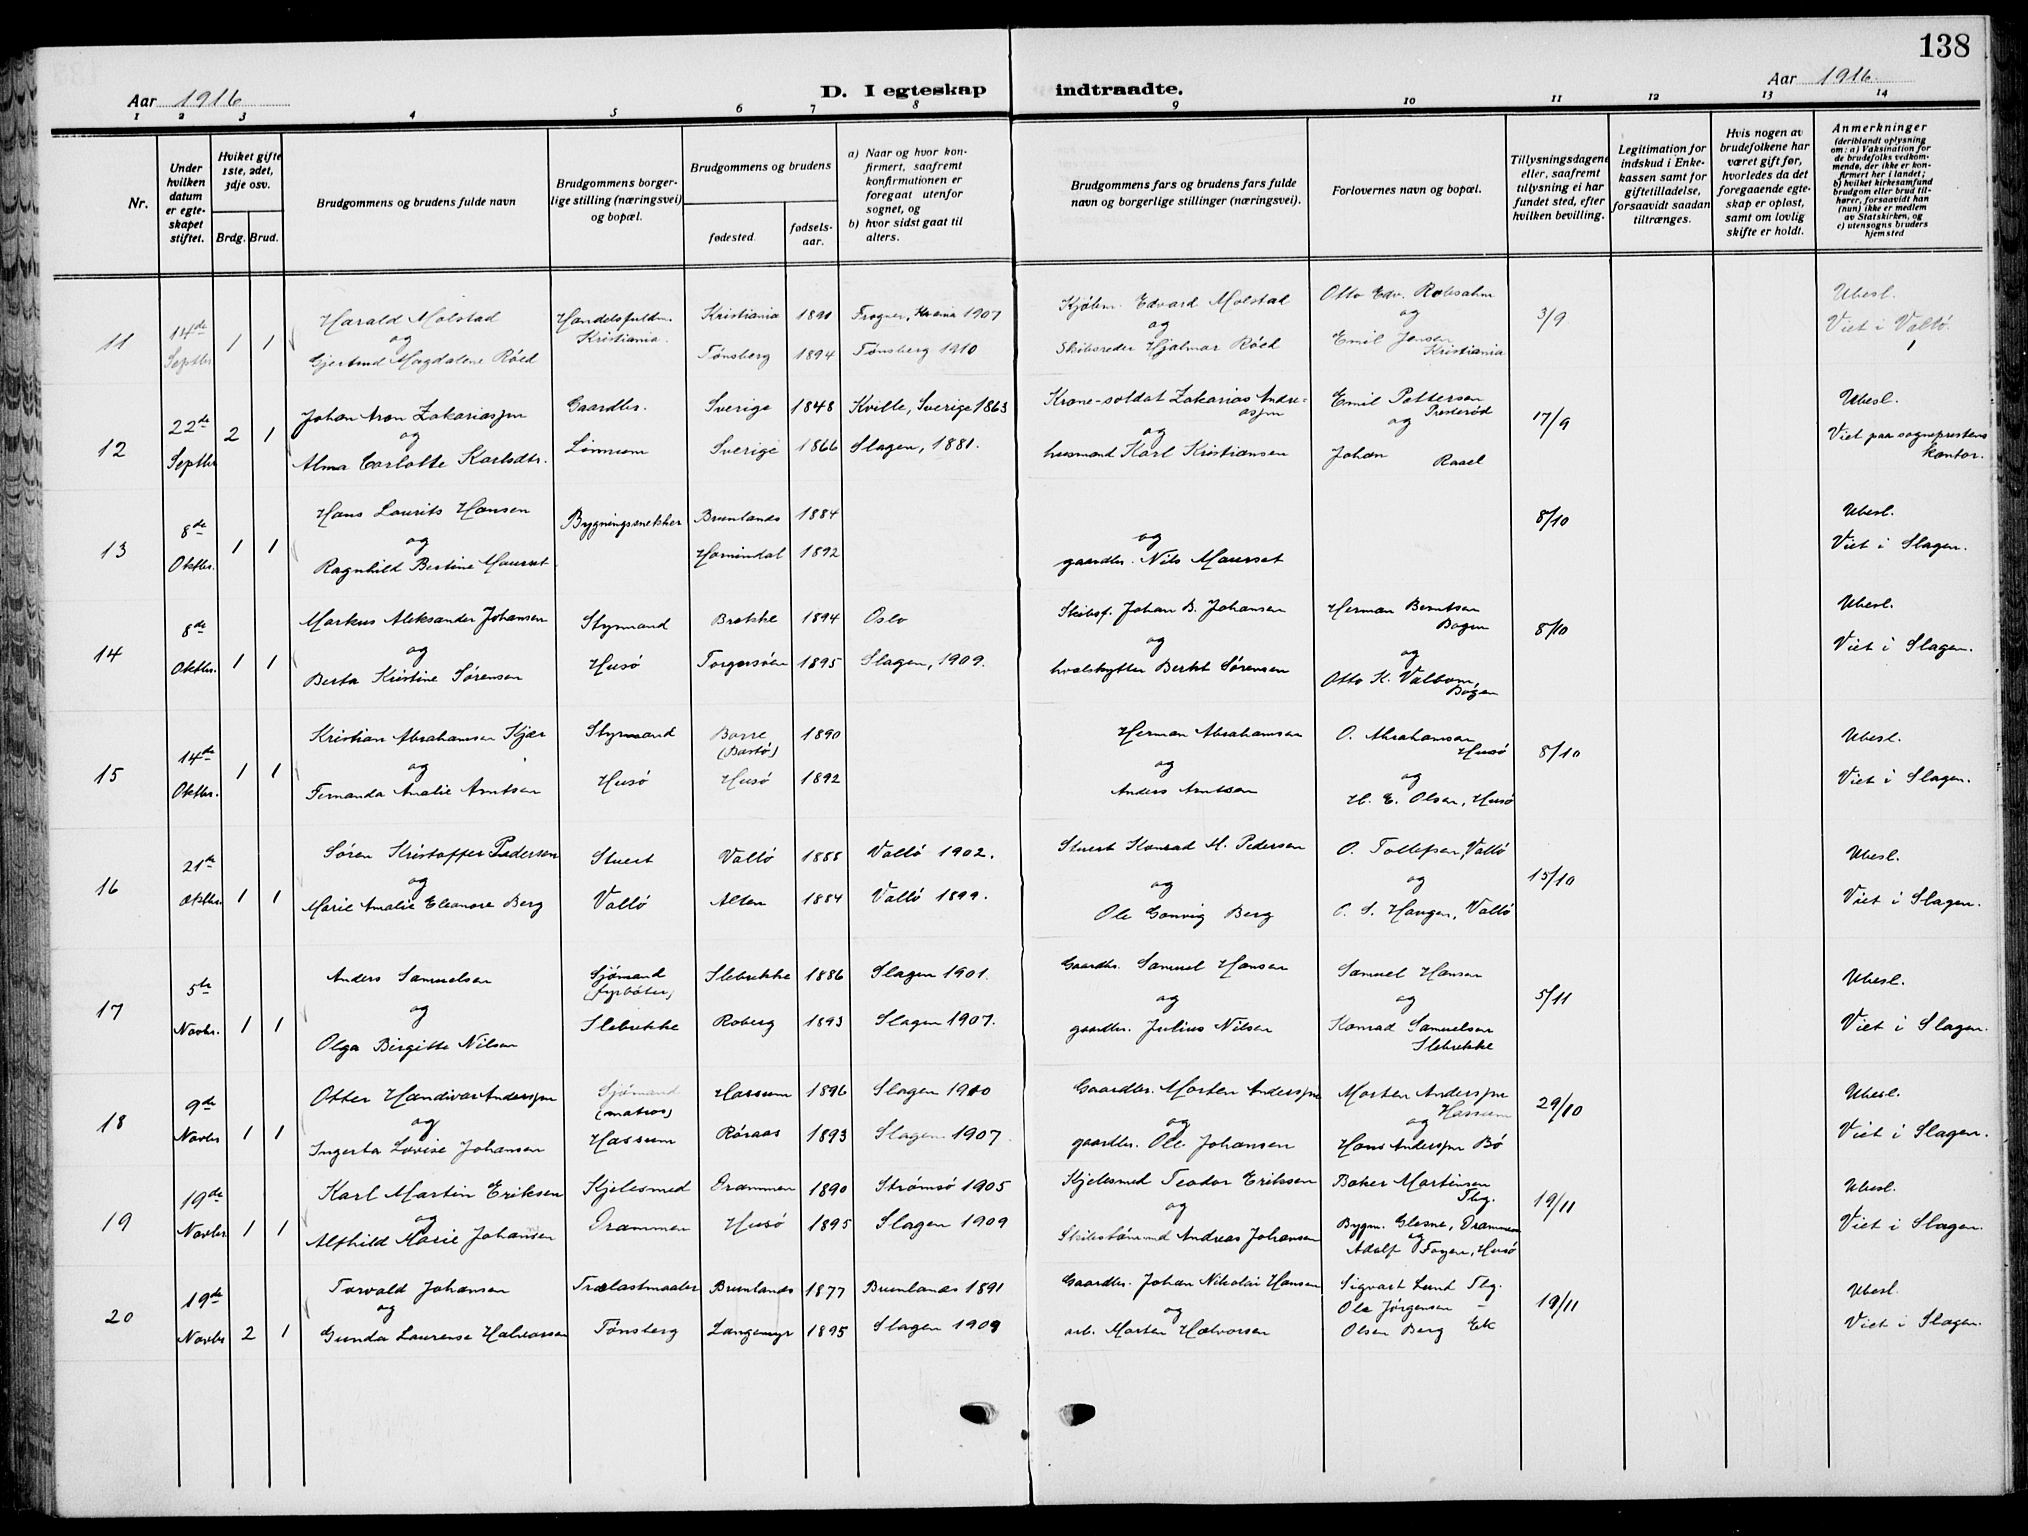 138
Aar 1916
D. I egteskap indtraadte.
Aar 1916.
1 2 3 4 5 6 7 8 9 10 11 12 13 14
Nr.
Under hvilken datum er egteskapet stiftet.
Hviket gifte 1ste, 2det, 3dje osv.
Brdg. Brud.
Brudgommens og brudens fulde navn
Brudgommens borgerlige stilling (næringsvei) og bopæl.
Brudgommens og brudens
fødested.
fødselsaar.
a) Naar og hvor konfirmert, saafremt konfirmationen er foregaat utenfor sognet, og
b) hvor sidst gaat til alters.
Brudgommens fars og brudens fars fulde navn og borgerlige stillinger (næringsvei).
Forlovernes navn og bopæl.
Tillysningsdagene eller, saafremt tillysning ei har fundet sted, efter hvilken bevilling.
Legitimation for indskud i Enkekassen samt for giftetilladelse, forsaavidt saadan tiltrænges.
Hvis nogen av brudefolkene har været gift før, hvorledes da det foregaaende egteskap er opløst, samt om lovlig skifte er holdt.
Anmerkninger
(deriblandt oplysning om: a) Vaksination for de brudefolks vedkommende, der ikke er konfirmert her i landet; b) hvilket kirkesamfund brudgom eller brud tilhører, forsaavidt han (hun) ikke er medlem av Statskirken, og c) utensogns bruders hjemsted
11 14de Septbr 1 1 Harald Molstad Handelsfuldm. Kristiania 1891 Frogner, Kr.ania 1907 Kjøbm. Edvard Molstad Otto Edv. Robsahm 3/9 Ubesl.
og Kristiania. og og Viet i Vallø.
Gjertrud Magdalene Røed Tønsberg 1894 Tønsberg 1910 Skibsreder Hjalmar Røed Emil Jensen Kristiania
12 22de Septbr 2 1 Johan Aron Zakariassen Gaardbr. Sverige 1848 Kville, Sverige 1863 Krone-soldat Zakarias Andreassen Emil Pettersen Presterød 17/9 Ubesl.
og og og Viet paa sogneprestens kontor.
Alma Carlotte Karlsdtr. Lønnum Sverige 1866 Slagen, 1881. husmand Karl Kristiansen Johan Raael
13 8de Oktbr. 1 1 Hans Laurits Hansen Bygningssnekker Brunlanes 1884 8/10 Ubesl.
og og Viet i Slagen.
Ragnhild Bertine Maurset Hornindal 1892 gaardbr. Nils Maurset
14 8de Oktbr. 1 1 Markus Aleksander Johansen Styrmand Brekke 1894 Oslo Skibsf. Johan B. Johansen Herman Berntsen Bogen 8/10 Ubesl.
og og og Viet i Slagen.
Berta Kristine Sørensen Husø Torgersøen 1895 Slagen, 1909. hvalskytter Berht Sørensen Otto K. Valbom, Bøgen
15 14de Oktbr. 1 1 Kristian Abrahamsen Kjær Styrmand Borre (Bastø) 1890 Herman Abrahamsen O. Abrahamsen Husø 8/10 Ubesl.
og og og Viet i Slagen.
Fernanda Amalie Arntsen Husø Husø 1892 Anders Arntsen H. E. Olsen, Husø
16 21de Oktbr. 1 1 Søren Kristoffer Pedersen Stuert Vallø 1888 Vallø 1902. Stuert Konrad M. Pedersen O. Tollefsen, Vallø 15/10 Ubesl.
og og og Viet i Slagen.
Marie Amalie Eleanore Berg Vallø Alten 1884 Vallø 1899. Ole Gonvig Berg O. S. Haugen, Vallø
17 5te Novbr. 1 1 Anders Samuelsen Sjømand (fyrbøter) Slebrekke 1886 Slagen 1901. Gaardbr. Samuel Hansen Samuel Hansen 5/11 Ubesl.
og og og Viet i Slagen.
Olga Birgitte Nilsen Slebrekke Roberg 1893 Slagen 1907. gaardbr. Julius Nilsen Konrad Samuelsen Slebrekke
18 9de Novbr 1 1 Otter Handivar Anderssen Sjømand (matros) Hassum 1896 Slagen 1910 Gaardbr. Morten Anderssen Morten Anderssen Hassum 29/10 Ubesl.
og og og Viet i Slagen.
Ingerta Lovise Johansen Hassum Røraas 1893 Slagen 1907. gaardbr. Ole Johansen Hans Anderssen Bø
19 19de Novbr 1 1 Karl Martin Eriksen Kjelesmed Drammen 1890 Strømsø 1905 Kjelesmed Teodor Erikssen Baker Martinsen Tbg. 19/11 Ubesl.
og og Bygm. Glesne, Drammen og Viet i Slagen.
Alfhild Marie Johansen Drammen Husø 1895 Slagen 1909 Skibstømmd Andreas Johansen Adolf Foyen, Husø
20 19de Novbr 2 1 Torvald Johansen Trælastmaaler Brunlanes 1877 Brunlanes 1891 Gaardbr. Johan Nikolai Hansen Sigvart Lund Tbg. 19/11 Ubesl.
og og Ole Jørgensen – Viet i Slagen.
Gunda Laurense Halvorsen Tønsberg Langemyr 1895 Slagen 1909 arb. Morten Halvorsen Olsen Berg Ek